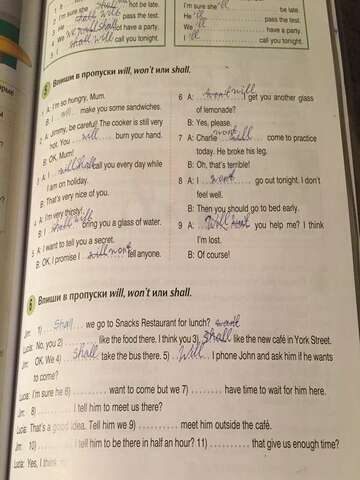 I'm sure she
not be late.
be late.
3 He
shall will
pass the test.
He 'll
pass the test.
We
not have a party.
We 'll
have a party.
shall will
call you tonight.
I 'll
call you tonight.
5 Впиши в пропуски will, won't или shall.
1 A: I'm so hungry, Mum.
B: I will make you some sandwiches.
2 A: Jimmy, be careful! The cooker is still very
hot. You will burn your hand.
B: OK, Mum!
3 A: I will shall call you every day while
I am on holiday.
B: That's very nice of you.
4 A: I'm very thirsty!
B: I shall will bring you a glass of water.
5 A: I want to tell you a secret.
B: OK, I promise I will wont tell anyone.
6 A: wont will I get you another glass
of lemonade?
B: Yes, please.
7 A: Charlie wont will come to practice
today. He broke his leg.
B: Oh, that's terrible!
8 A: I wont go out tonight. I don't
feel well.
B: Then you should go to bed early.
9 A: Will wont you help me? I think
I'm lost.
B: Of course!
6 Впиши в пропуски will, won't или shall.
Jim: 1) Shall we go to Snacks Restaurant for lunch? wont
Lucia: No, you 2) like the food there. I think you 3) shall like the new café in York Street.
Jim: OK. We 4) shall take the bus there. 5) will I phone John and ask him if he wants
to come?
Lucia: I'm sure he 6) want to come but we 7) have time to wait for him here.
Jim: 8) I tell him to meet us there?
Lucia: That's a good idea. Tell him we 9) meet him outside the café.
Jim: 10) I tell him to be there in half an hour? 11) that give us enough time?
Lucia: Yes, I think